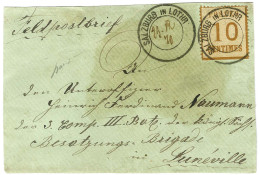 Feldpostbrief
SALZBURG IN LOTHR
SALZBURG IN LOTHR
10
CENTIMES
An
den Unteroffizier
Heinrich Ferdinand Naumann
der 3. Comp. III. Bat. der
Besatzungs-Brigade
Lunéville